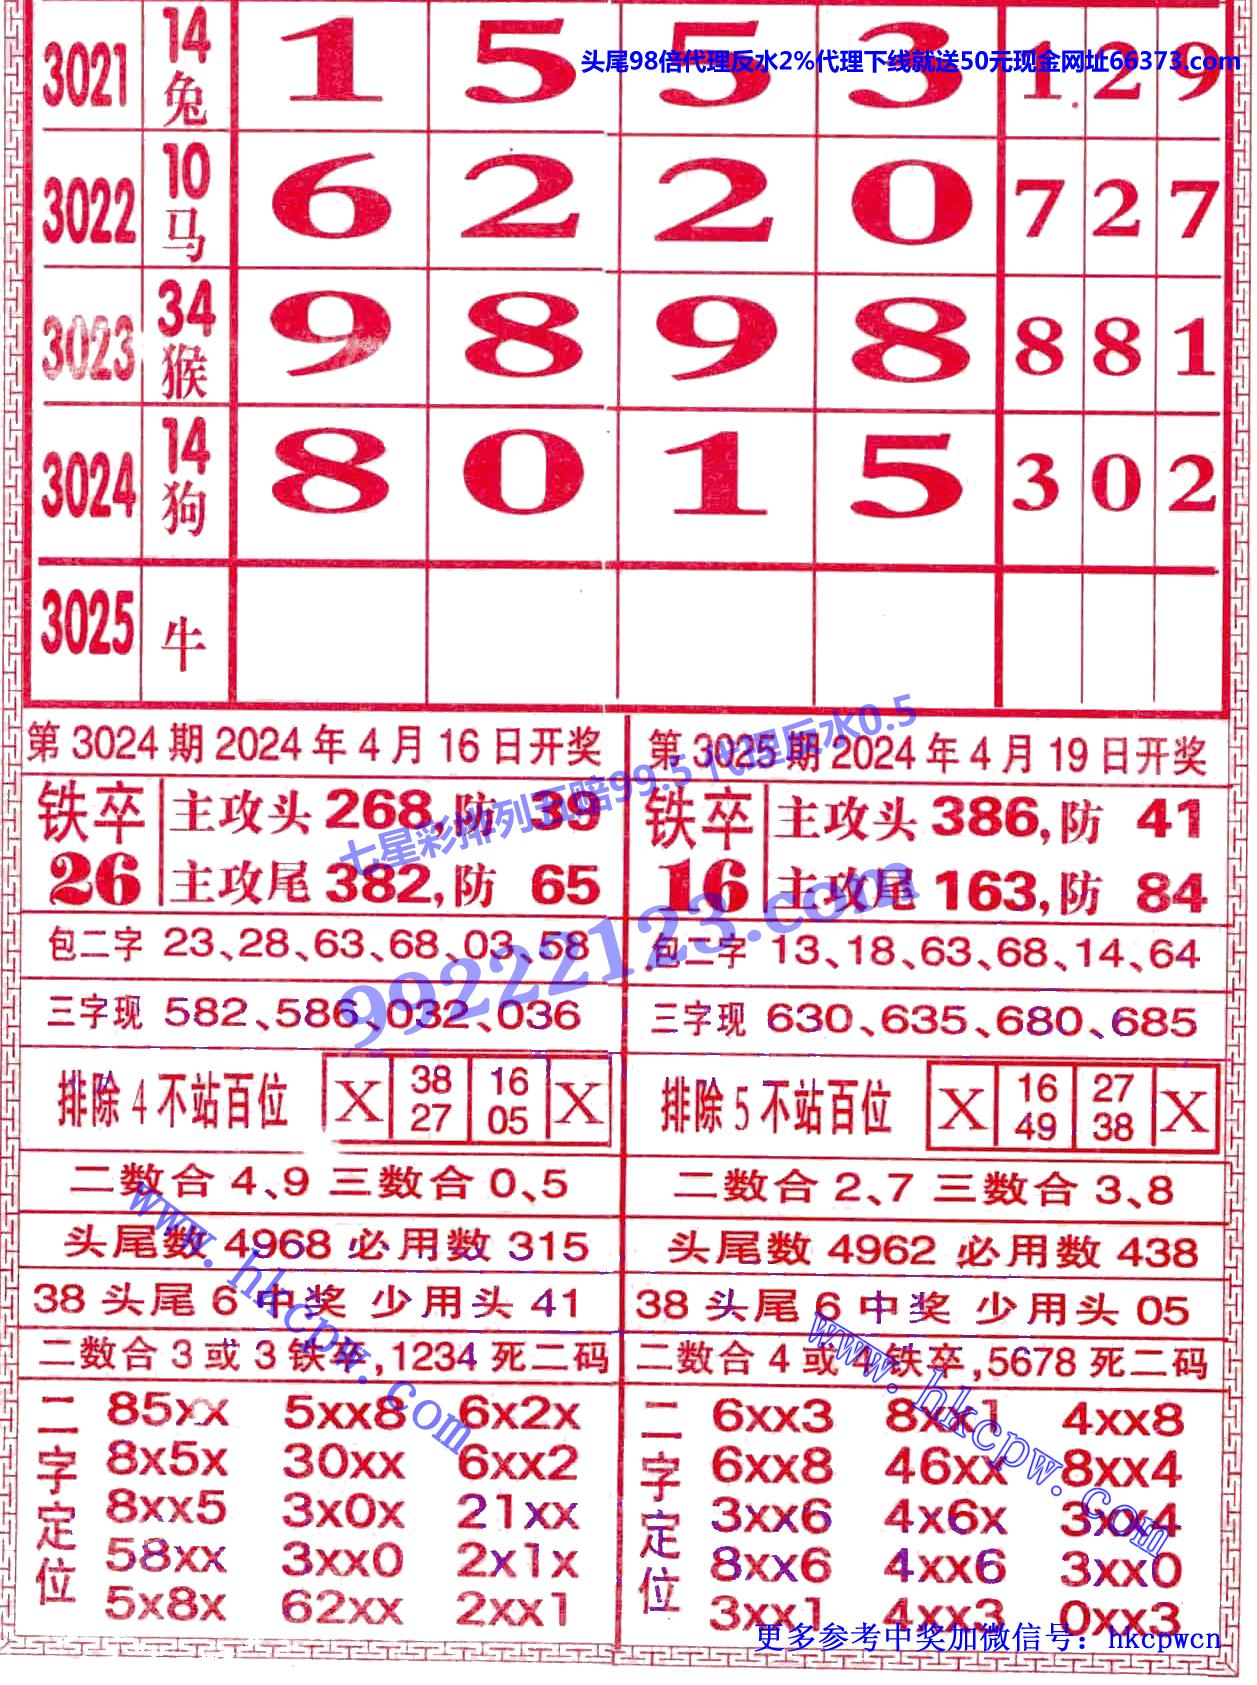 头尾98倍代理反水2%代理下线就送50元现金网址66373.com
3021 14兔 1 5 5 3 1 2 9
3022 10马 6 2 2 0 7 2 7
3023 34猴 9 8 9 8 8 8 1
3024 14狗 8 0 1 5 3 0 2
3025 牛
第3024期2024年4月16日开奖
铁卒26
主攻头268,防 39
主攻尾382,防 65
包二字 23、28、63、68、03、58
三字现 582、586、032、036
排除4不站百位 X 38 27 16 05 X
二数合4、9 三数合0、5
头尾数4968 必用数315
38头尾6中奖 少用头41
二数合3或3铁卒,1234死二码
二字定位
85xx 5xx8 6x2x
8x5x 30xx 6xx2
8xx5 3x0x 21xx
58xx 3xx0 2x1x
5x8x 62xx 2xx1
第3025期2024年4月19日开奖
铁卒16
主攻头386,防 41
主攻尾163,防 84
包二字 13、18、63、68、14、64
三字现 630、635、680、685
排除5不站百位 X 16 49 27 38 X
二数合2、7 三数合3、8
头尾数4962 必用数438
38头尾6中奖 少用头05
二数合4或4铁卒,5678死二码
二字定位
6xx3 8xx1 4xx8
6xx8 46xx 8xx4
3xx6 4x6x 3xx4
8xx6 4xx6 3xx0
3xx1 4xx3 0xx3
七星彩排列五赔99.5 代理反水0.5
99222123.com
www.hkcpw.com
www.hkcpw.com
更多参考中奖加微信号：hkcpwcn